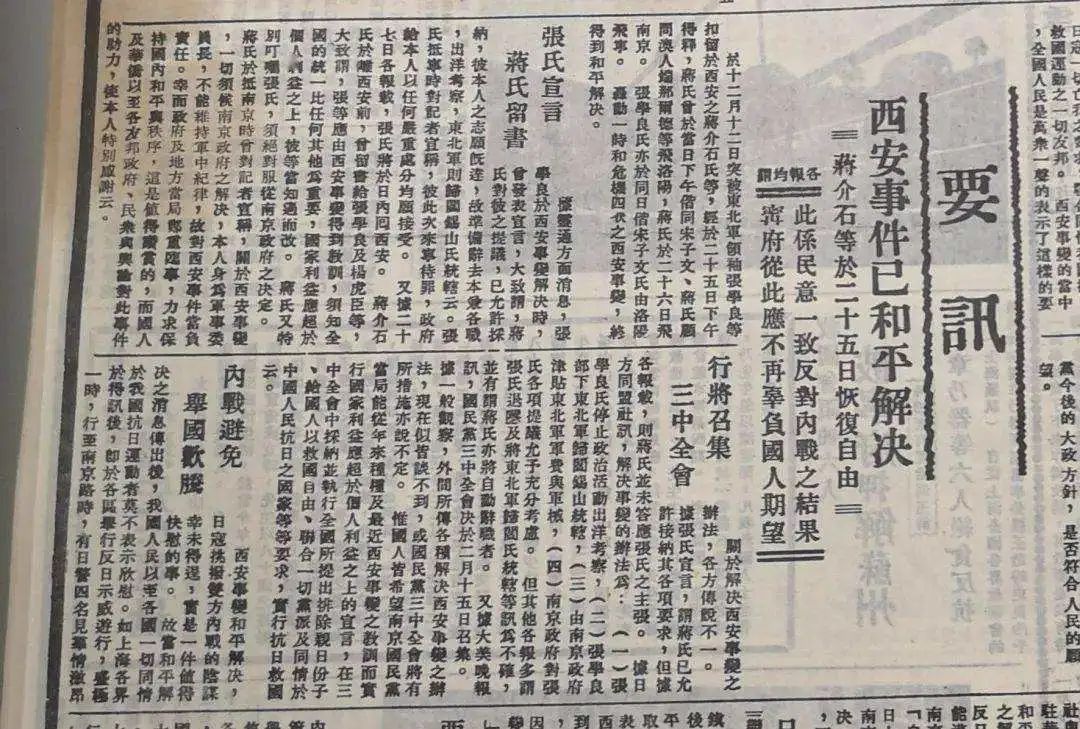 救國運動之一切友邦。西安事變的當中
，全國人民是萬衆一聲的表示了這樣的要
黨今後的大政方針，是否符合人民的願
望。
要訊
西安事件已和平解决
蔣介石等於二十五日恢復自由
各報均謂
此係民意一致反對內戰之結果
甯府從此應不再辜負國人期望
於十二月十二日突被東北軍領袖張學良等
扣留於西安之蔣介石氏等，經於二十五日下午
得釋，蔣氏曾於當日下午偕同宋子文、蔣氏顧
問澳人端那爾德等飛洛陽，蔣氏於二十六日飛
南京。張學良氏亦於同日偕宋子文氏由洛陽
飛寧。轟動一時和危機四伏之西安事變，終
得到和平解决。
張氏宣言
蔣氏留書
據靈通方面消息，張
學良於西安事變解决時，
曾發表宣言，大致謂，蔣
氏對彼之提議，已允許採
納，彼本人之志願旣達，故準備辭去本兼各職
，出洋考察，東北軍則歸閻錫山氏統轄云。張
氏抵寧時對記者宣稱，彼此次來寧待罪，政府
給本人以任何嚴重處分均願接受。又據二十
七日各報載，張氏將於日內囘西安。蔣介石
氏於離西安前，曾留書給張學良及楊虎臣等，
大致謂，張等應由西安事變得到敎訓，須知全
國的統一比任何其他為重要，國家利益應超於
個人利益之上，彼等當知過而改。蔣氏又特
別叮囑張氏，須絕對服從南京政府之決定。
蔣氏於抵南京時曾對記者宣稱，關於西安事變
，一切須候南京政府之解决，本人身為軍事委
員長，不能維持軍中紀律，故對西安事件當負
責任。幸而政府及地方當局鄭重臨事，力求保
持國內和平與秩序，這是值得讚賞的，而國人
及華僑以至各友邦政府、民衆與輿論對此事件
的助力，使本人特別感謝云。
行將召集
三中全會
關於解决西安事變之
辦法，各方傳說不一。
據張氏宣言，謂蔣氏已允
許接納其各項要求，但據
各報載，則蔣氏並未答應張氏之主張。據日
方同盟社訊，解决事變的辦法為：（一）張
學良氏停止政治活動出洋考察，（二）張學良
部下東北軍歸閻錫山統轄，（三）由南京政府
津貼東北軍軍費與軍械，（四）南京政府對張
氏各項提議允予充分考慮。但其他各報多謂
張氏退隱及將東北軍歸閻氏統轄等訊為不確，
並有謂蔣氏亦將自動辭職者。又據大美晚報
訊，國民黨三中全會決於二月十五日召集。
據一般觀察，外間所傳各種解决西安事變之辦
法，現在似皆談不到，或國民黨三中全會將有
所措施亦說不定。惟國人皆希望南京國民黨
當局能從年來種種及最近西安事變之敎訓而實
行國家利益應超於個人利益之上的宣言，在三
中全會中採納並執行全國所提出排除親日份子
、給國人以救國自由、聯合一切黨派及同情於
中國人民抗日之國家等等要求，實行抗日救國
云。
內戰避免
舉國歡騰
西安事變和平解决，
日寇挑撥雙方內戰的陰謀
幸未得逞，實是一件值得
快慰的事。故當和平解
决之消息傳出後，我國人民以至各國一切同情
於我國抗日運動者莫不表示欣慰。如上海各界
於得訊後，卽於各區舉行反日示威遊行，盛極
一時，行至南京路時，有日警四名見羣情激昂